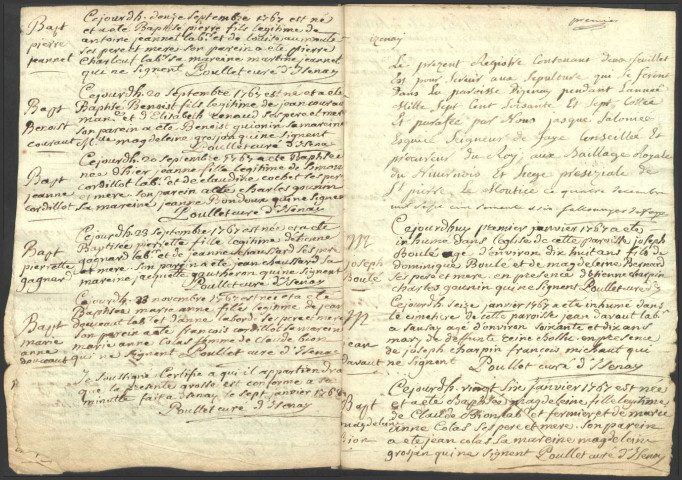 Bapt
pierre
jeannet
Cejourdh. douze septembre 1767 est né
et a ete Baptisé pierre fils legitime de
antoine jeannet lab.r et de Louise aumeule
ses pere et mere son parein a ete pierre
Charlout lab.r sa mareine martine jeannet
qui ne signent Poullet curé d'Isenay
Bapt
Benoist
couraut
Cejourdh. 20 septembre 1767 est né et a ete
Baptisé Benoist fils legitime de jean couraut
man.r et d'Elisabeth renaud ses pere et mere
son parein a ete Benoist guionin sa mareine
magdeleine grosjan qui ne signent
Poullet curé d'Isenay
Bapt
jeanne
cordillot
Cejourdh. 20 septembre 1767 a ete Baptisée
née d'hier jeanne fille legitime de Simon
cordillot lab.r et de claudine cochet ses pere
et mere son parein a ete charles gounin
sa mareine jeanne Bondoux qui ne signent
Poullet curé d'Isenay
Bapt
pierrette
gagnard
Cejourdh. 23 septembre 1767 est née et a ete
Baptisée pierrette fille legitime d'étienne
gagnard lab.r et de jeanne chaussard ses pere
et mere son parein a ete jean chaussard sa
mareine jacquette gautheron qui ne signent
Poullet curé d'Isenay
Bapt
marie
anne
doucaut
Cejourdh. 28 novembre 1767 est née et a ete
Baptisée marie anne fille legitime de jean
doucaut lab.r et d'anne labord ses pere et mere
son parein a ete francois cordillot sa mareine
marie anne Colas femme de claude bion
qui ne signent Poullet curé d'Isenay
Je soussigné Certifie a qui il appartiendra
que la présente grosse est conforme a sa
minutte fait a Isenay le sept janvier 1768
Poullet curé d'Isenay
premier
izenay
Le present Registre Contenant deux feuilles
Est pour servir aux Sepulture qui se feront
Dans La paroisse D'izenay pendant L'année
Mille Sept Cent Soixante Et Sept, Cotté
Et paraffé par Nous jacque Salonier
Esquié Seigneur de faye Conseiller Et
procureur du Roy, aux Baillage Royale
du Nivernois Et Siege presidiale de
St pierre Le Moutier ce quatre decembre
mil sept cent soixante et six
M
joseph
Boulé
Cejourdhuy premier janvier 1767 a ete
inhumé dans l'eglise de cette paroisse joseph
Boulé agé d'environ dix huit ans fils de
dominique Boulé et de magdeleine Bernard
ses pere et mere en presence d'étienne charpin
charles gounin qui ne signent Poullet curé d'I
M
jean
davaut
Cejourdh. seize janvier 1767 a ete inhumé dans
le cimetiere de cette paroisse jean davaut lab.r
a sausay agé d'environ soixante et dix ans
mary de deffunte reine Bolhe en presence
de joseph charpin francois michaut qui
ne signent Poullet curé d'Isenay
Bapt
magdeleine
Bion
Cejourdh. vingt six janvier 1767 est née
et a ete Baptisée magdeleine fille legitime
de Claude Bion lab.r et fermier et de marie
anne Colas ses pere et mere son parein
a ete jean colas sa mareine magdeleine
grosjan qui ne signent Poullet curé d'Isenay